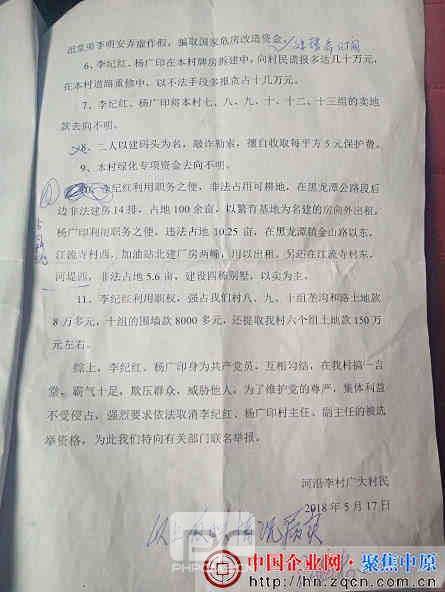 批堂弟李明安弄虚作假，骗取国家危房改造资金。
6、李纪红、杨广印在本村牌房拆建中，向村民谎报多达几十万元，
在本村道路重修中，以不法手段多报贪占十几万元。
7、李纪红、杨广印将本村七、八、九、十、十二、十三组的卖地
款去向不明。
8、二人以建码头为名，敲诈勒索，擅自收取每平方5元保护费。
9、本村绿化专项资金去向不明。
10、李纪红利用职务之便，非法占用可耕地，在黑龙潭公路段后
边非法建房14排，占地100余亩，以繁育基地为名建的房向外出租。
杨广印利用职务之便，违法占地10.25亩，在黑龙潭镇金山路以东，
江流寺村西，加油站北建厂房两幢，用以出租。另还在江流寺村东，
河堤西，非法占地5.6亩，建设四栋别墅，以卖为主。
11、李纪红利用职权，强占我们村八、九、十组垄沟和路土地款
8万多元，十组的围墙款8000多元，还提取我村六个组土地款150万
元左右。
综上，李纪红、杨广印身为共产党员，互相勾结，在我村搞一言
堂，霸气十足，欺压群众，威胁他人，为了维护党的尊严，集体利益
不受侵占，强烈要求依法取消李纪红、杨广印村主任、副主任的被选
举资格，为此我们特向有关部门联名举报。
河沿李村广大村民
2018年5月17日
以上 情况属实
中国企业网·聚焦中原
http://hn.zqcn.com.cn